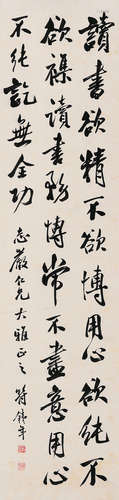 讀書欲精不欲博用心欲純不
欲襍讀書務博常不盡意用心
不純訖無全功
志嚴仁兄大雅正之 符鑄